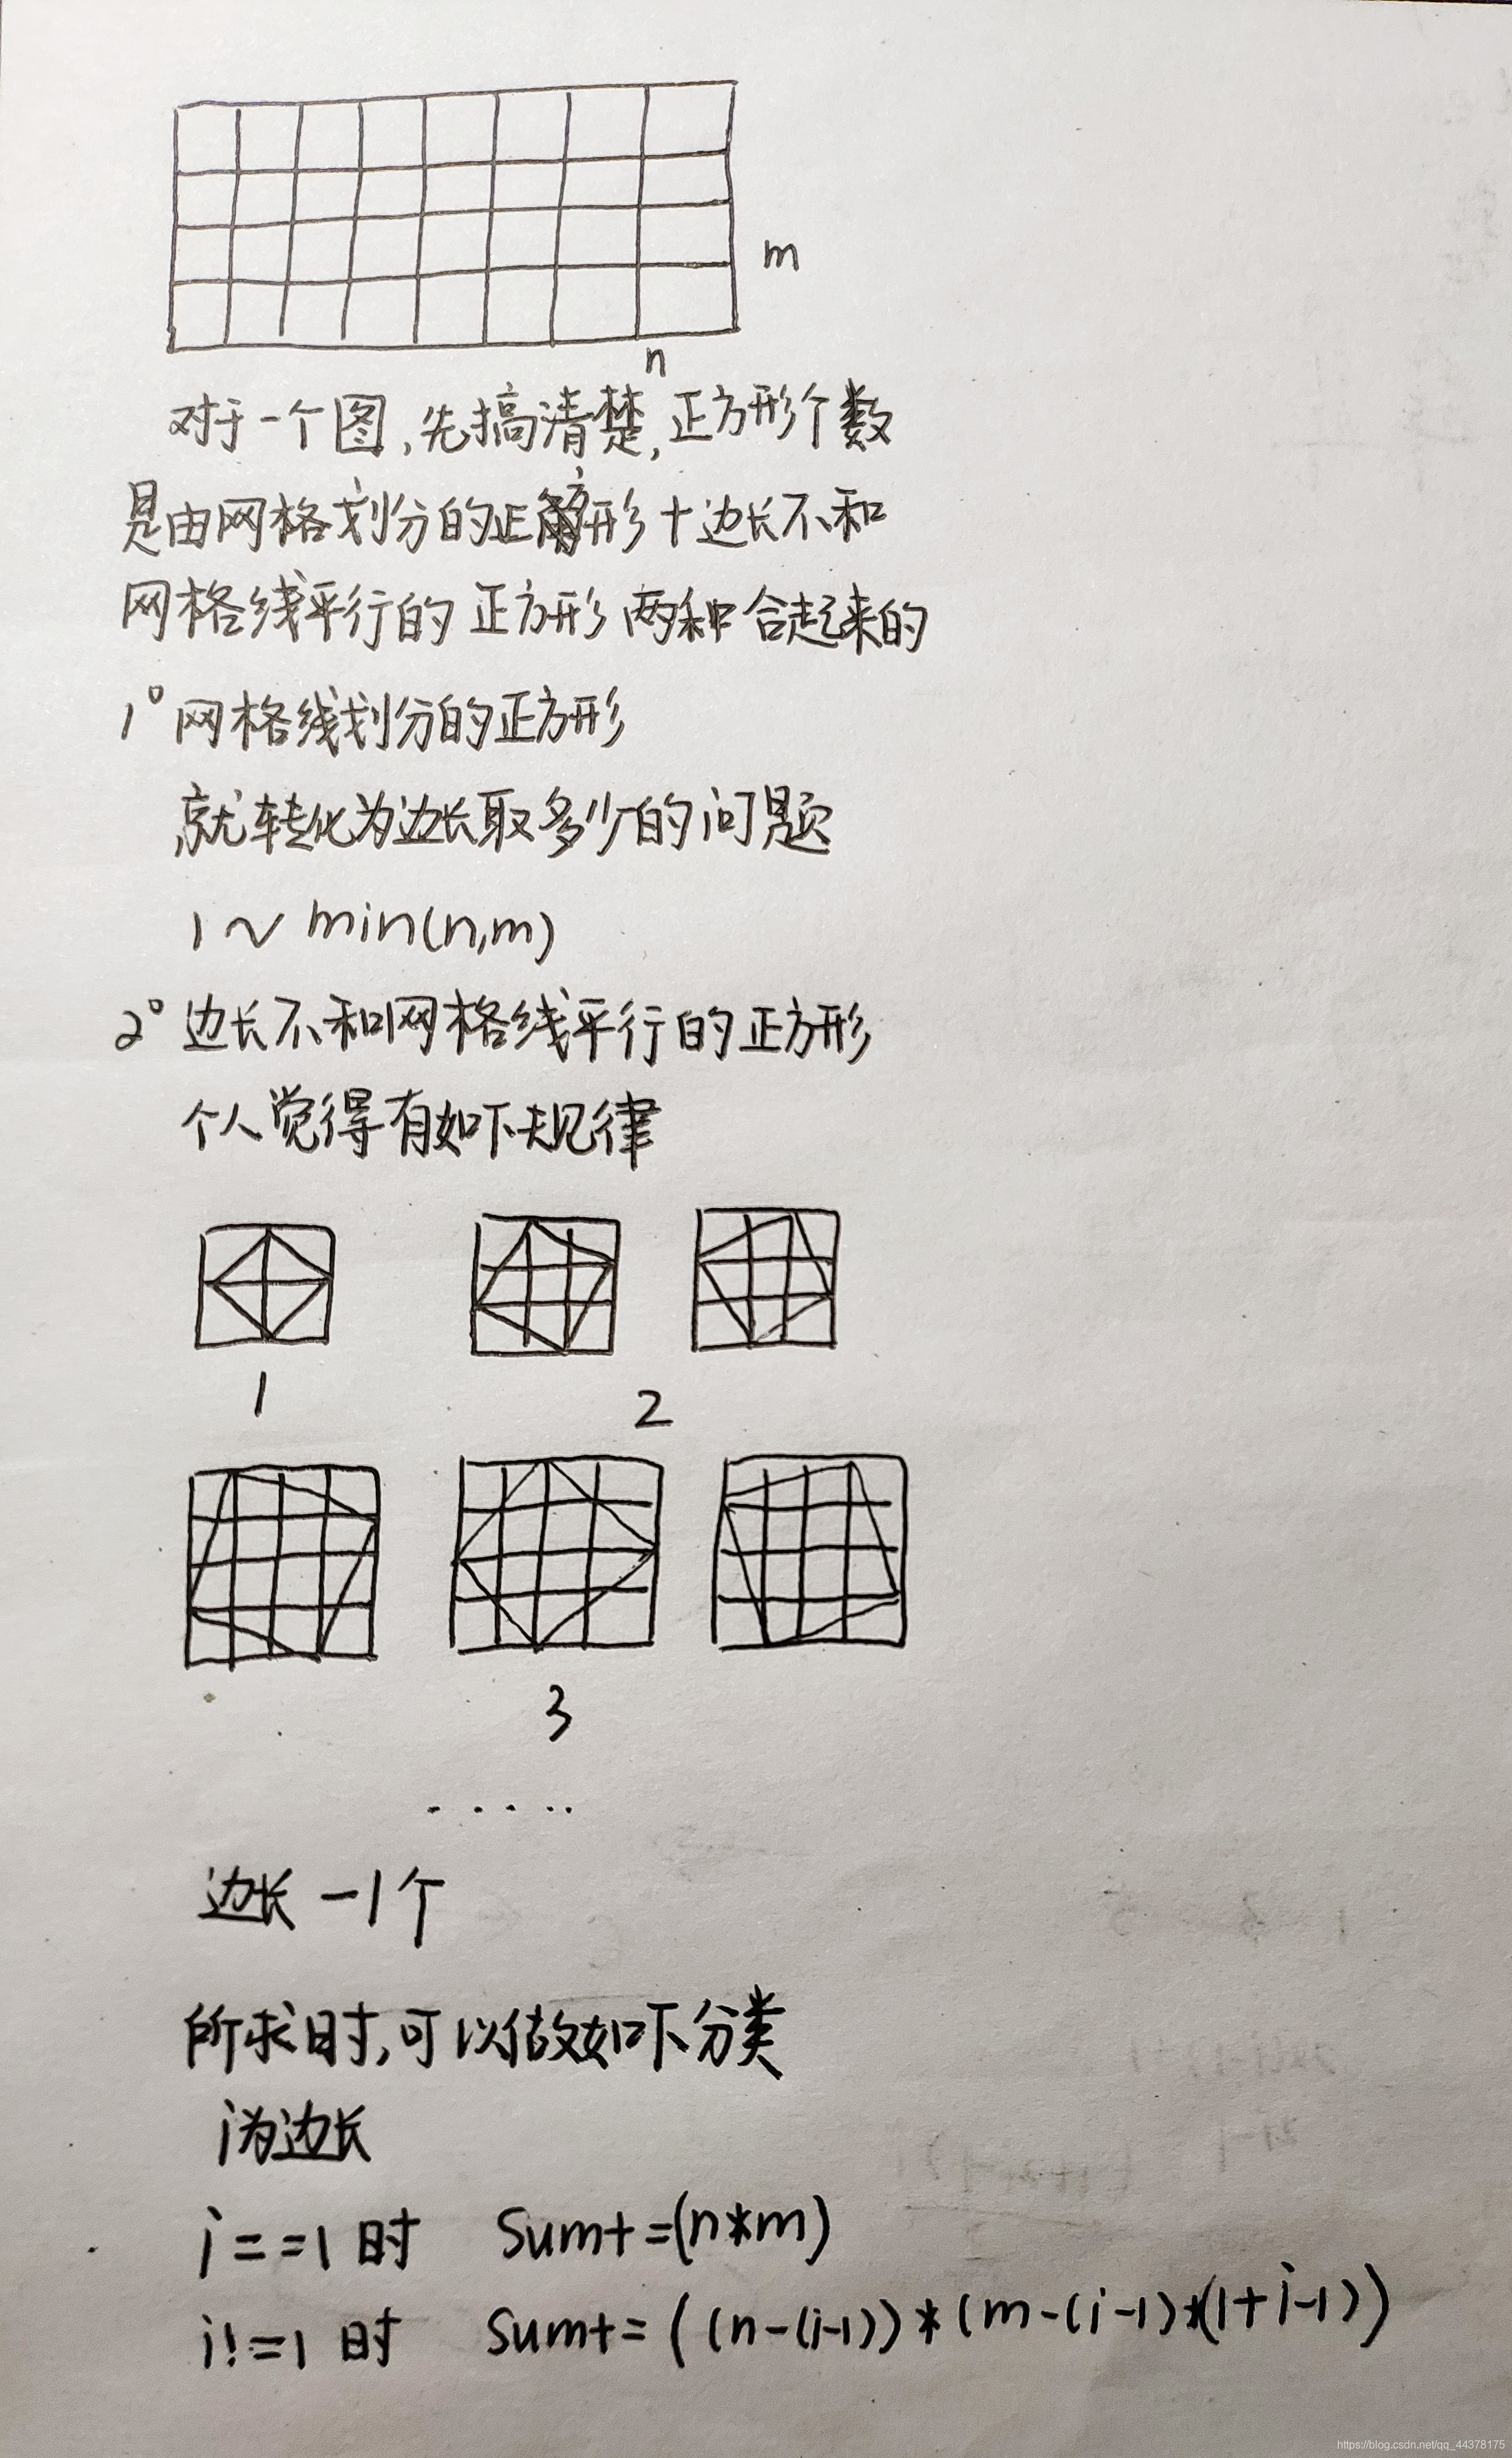 m
n
对于一个图,先搞清楚,正方形个数
是由网格划分的正方形+边长不和
网格线平行的正方形两种合起来的
1° 网格线划分的正方形
就转化为边长取多少的问题
1~min(n,m)
2° 边长不和网格线平行的正方形
个人觉得有如下规律
1
2
3
.....
边长-1个
所求时,可以做如下分类
i为边长
i==1时 Sum+=(n*m)
i!=1时 Sum+=((n-(i-1))*(m-(i-1)*(1+i-1))
https://blog.csdn.net/qq_44378175